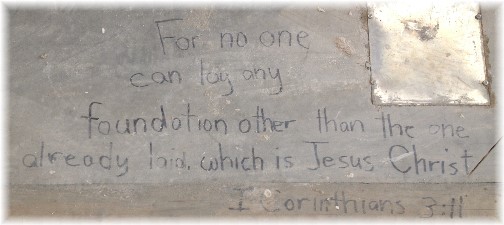 For no one
can lay any
foundation other than the one
already laid, which is Jesus Christ
I Corinthians 3:11